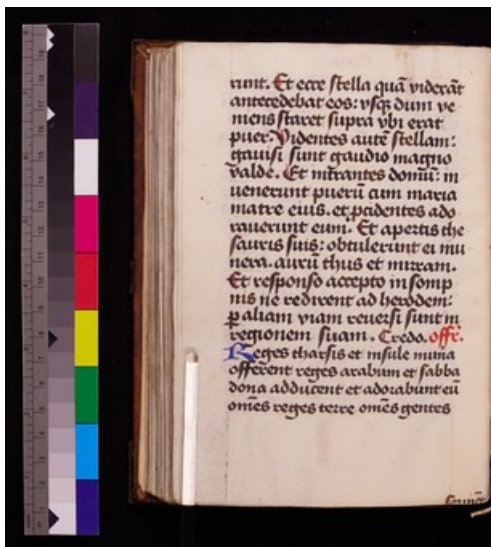 runt. Et ecce stella quā viderāt
antecedebat eos: vsq; dum ve
niens staret supra vbi erat
puer. Videntes autē stellam:
gauisi sunt gaudio magno
valde. Et intrantes domū: in
uenerunt puerū cum maria
matre eius. et pcidentes ado
rauerunt eum. Et apertis the
sauris suis: obtulerunt ei mu
nera. aurū thus et mirram.
Et responso accepto in somp
nis ne redirent ad herodem:
ꝑ aliam viam reuersi sunt in
regionem suam. Credo. offē.
Reges tharsis et insule munā
offerent reges arabum et sabba
dona adducent et adorabunt eū
om̄es reges terre om̄es gentes